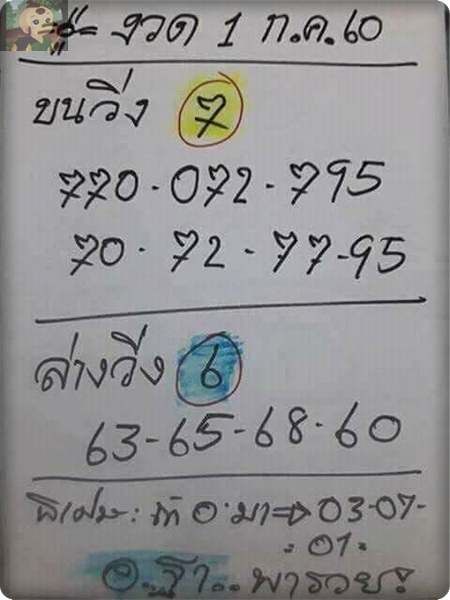 งวด 1 ก.ค.60
บนวิ่ง 7
770-072-795
70-72-77-95
ล่างวิ่ง 6
63-65-68-60
พิเศษ: ถ้า 0 มา⇒03-07-
01
อ.ฐา.. พารวย!